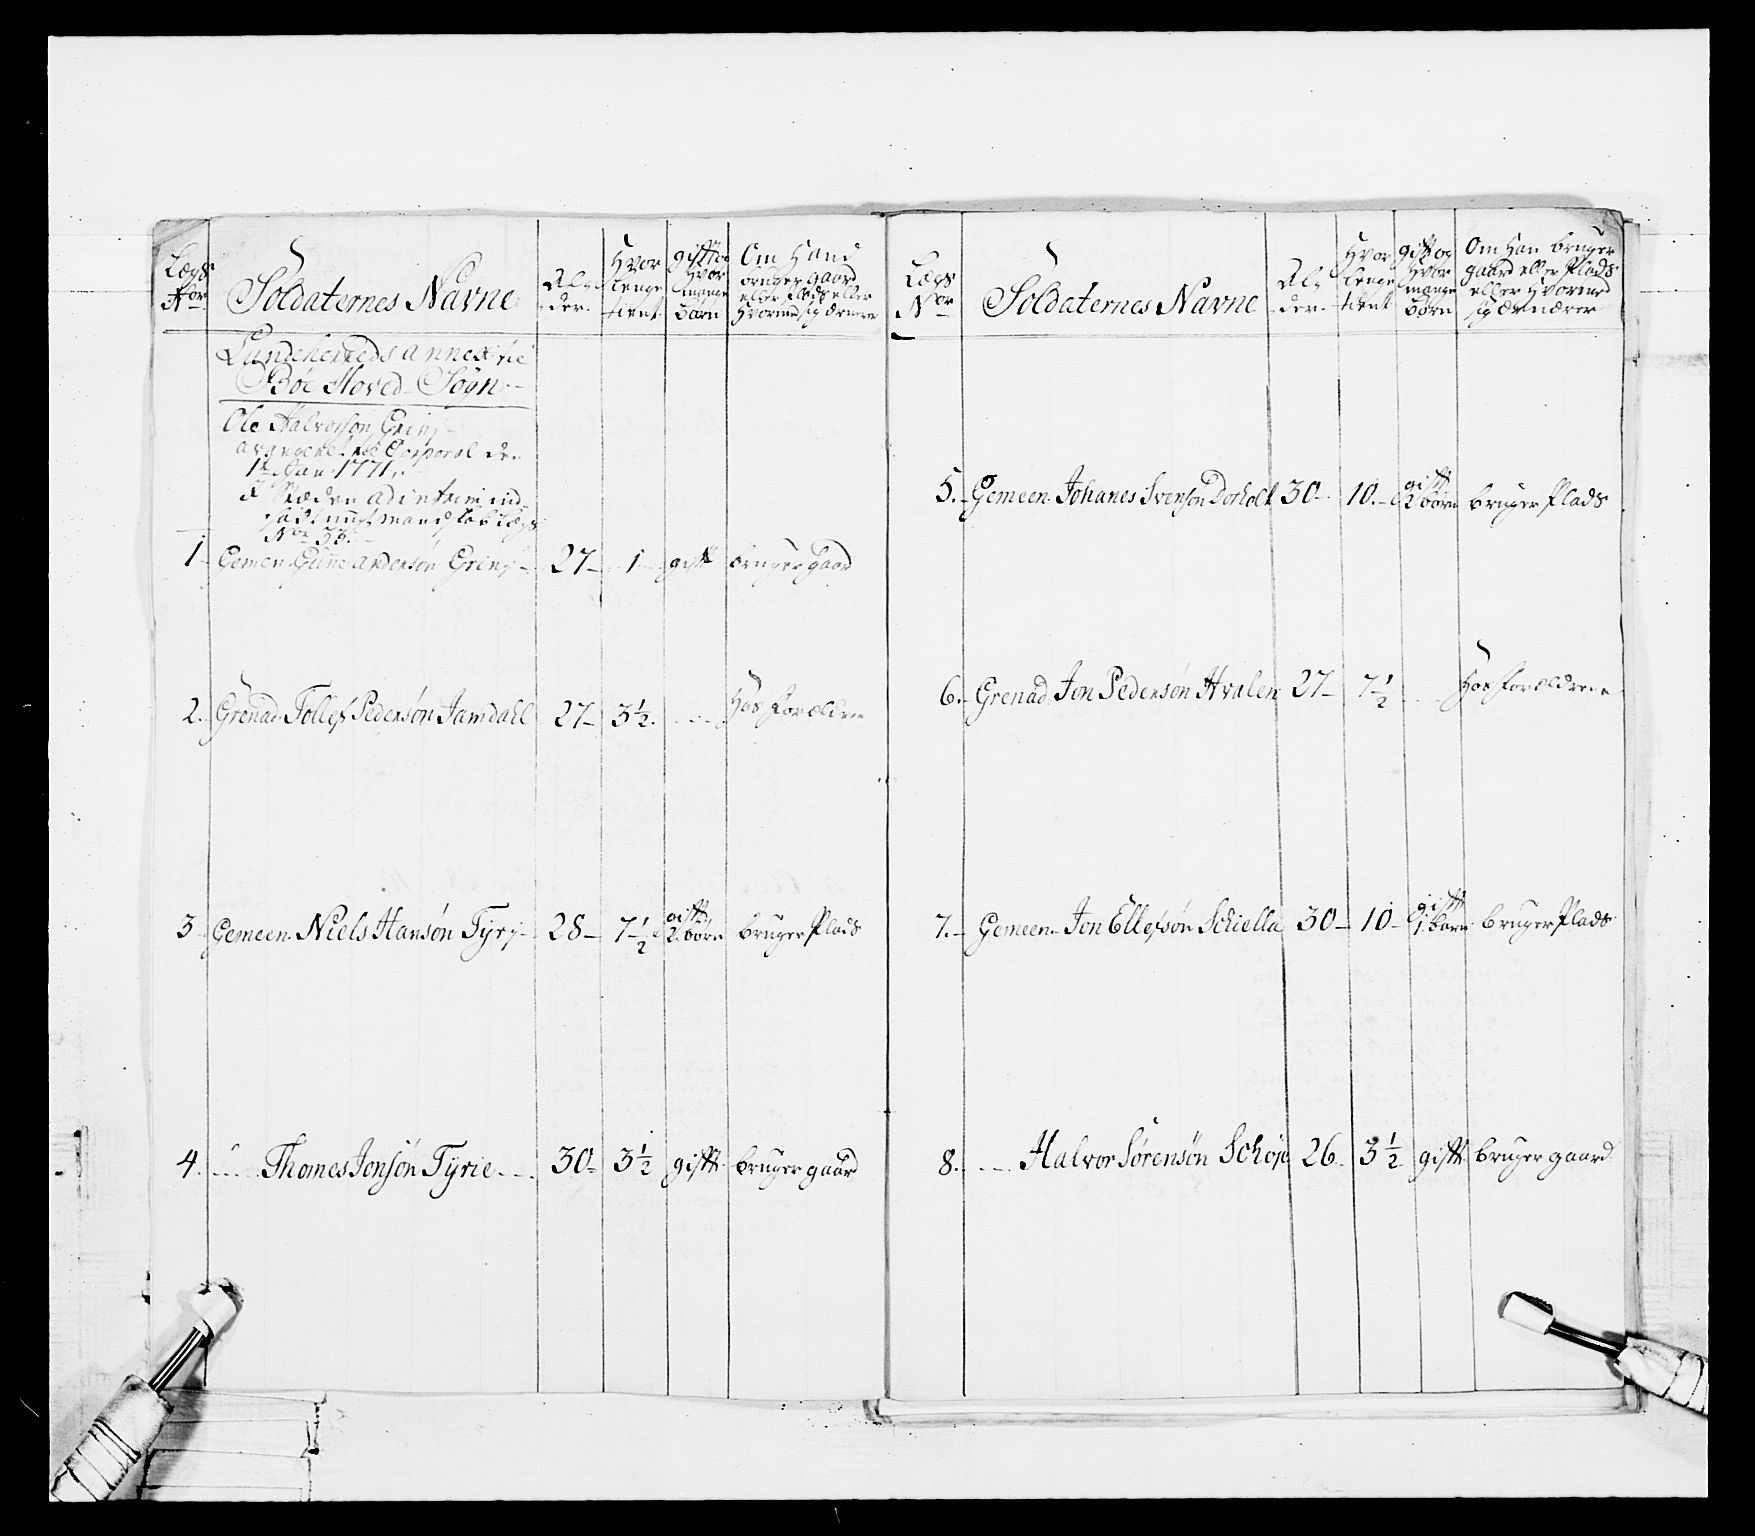 Lægs Nor
Soldaternes Navne
Al= der.
Hvor lenge tient
gift og Hvor mange børn
Om Hand bruger gaard eller Plads eller Hvormed sig ærnærer
Lundeherreds annex til
Bøe Hoved Sogn
Ole Halvorsøn Grinj
avangeret til Corporal den
1te Jan: 1771.
I Stæden ad interim ind
Nor 33.
1 Gemen Gune andersøn Grinj 27 1 gift bruger gaard
2. Grenad. Tollef Pedersøn Jamdahl 27 3½ Hos Forældrene
3 Gemeen. Niels Hansøn Tyrj 28 7½ gift 2 børn bruger Plads
4. Thomes Jonsøn Tyrie 30 3½ gift bruger gaard
Lægs Nor
Soldaternes Navne
Al= der.
Hvor lenge tient
gift og Hvor mange børn
Om Han bruger gaard eller Plads eller Hvormed sig ærnærer
5. Gemeen. Johanes Svensøn Dorholt 30 10. gift 2 børn bruger Plads
6. Grenad. Jon Pedersøn Hvalen 27 7½ Hos Forældrene
7. Gemeen Jon Ellefsøn Schiella 30 10 gift 1 barn bruger Plads
8. Halvor Sørensøn Schoje 26 3½ gift bruger gaard